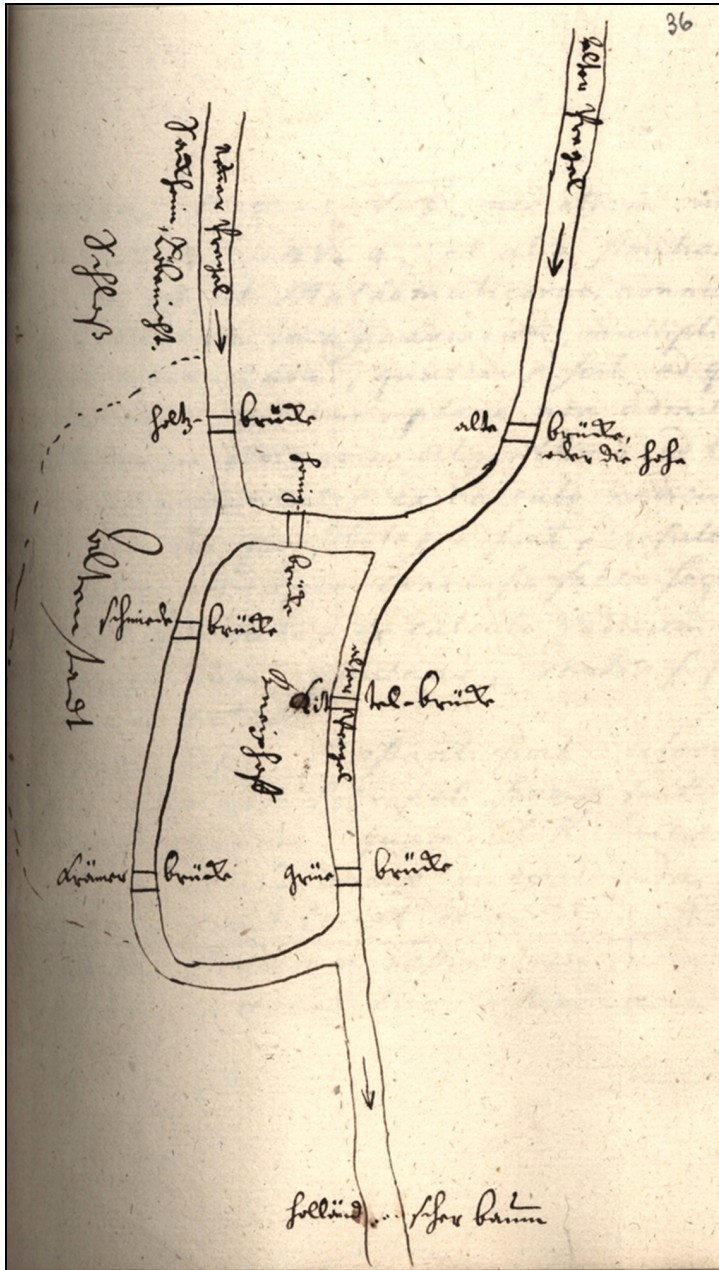 36
alter Pregel
neuer Pregel
Sackheim, Löbenicht.
Schloß
holtz- brücke
alte brücke,
oder die hohe
honig- brücke
alten stadt
schmiede brücke
alten Pregel
Kneiphoff
Kit tel-brücke
Krämer brücke
grüne brücke
holländ scher baum